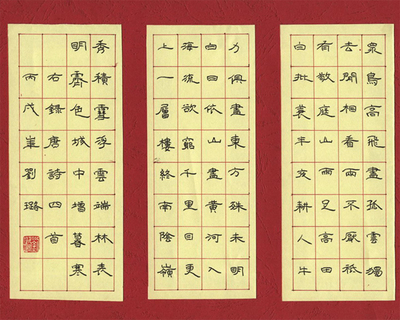 眾鳥高飛盡孤雲獨
去閒相看兩不厭祗
有敬庭山雨足高田
白披蓑半夜耕人牛
力俱盡東方殊未明
白日依山盡黃河入
海流欲窮千里目更
上一層樓終南陰嶺
秀積雪浮雲端林表
明霽色城中增暮寒
右錄唐詩四首
丙戌年劉璐